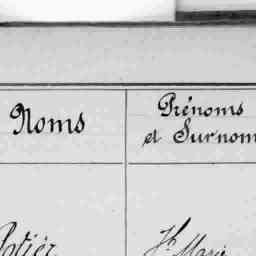 Noms
Prénoms
et Surnom
Potier
Marie